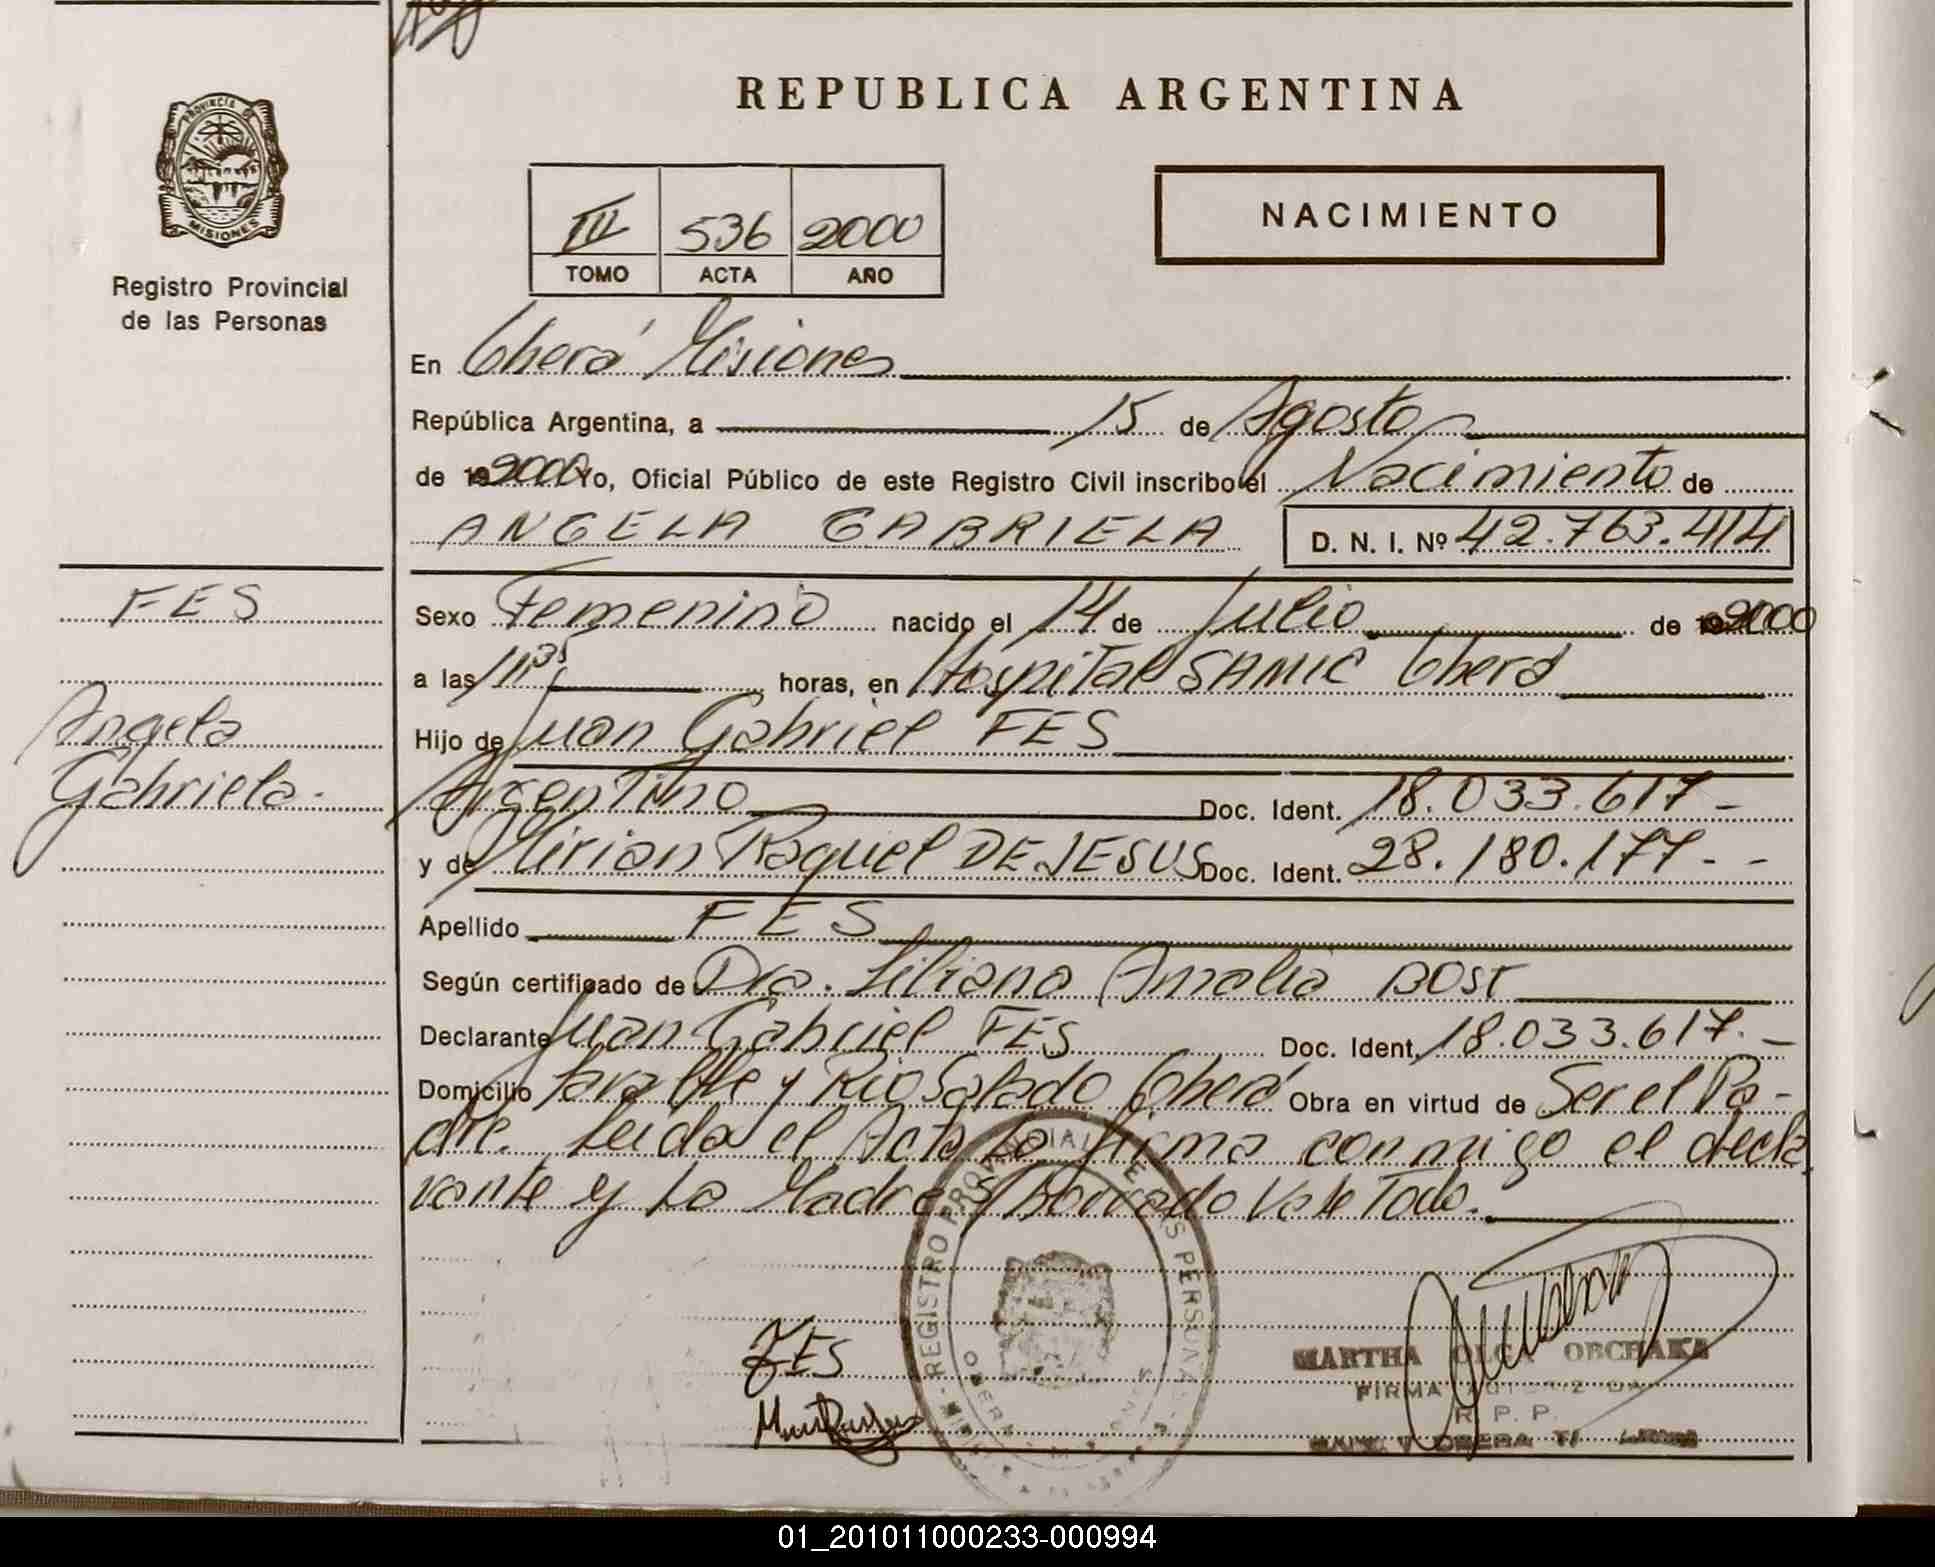 REPUBLICA ARGENTINA
PROVINCIA DE
MISIONES
Registro Provincial
de las Personas
III 536 2000
TOMO ACTA AÑO
NACIMIENTO
En Oberá Misiones
República Argentina, a 15 de Agosto
de 2000 Yo, Oficial Público de este Registro Civil inscribo el Nacimiento de
ANGELA GABRIELA D. N. I. Nº 42.763.414
FES
Angela
Gabriela.-
Sexo Femenino nacido el 14 de Julio de 2000
a las 11 35 horas, en Hospital SAMIC Oberá
Hijo de Juan Gabriel FES
Argentino Doc. Ident. 18.033.617-
y de Mirian Raquel DE JESUS Doc. Ident. 28.180.177--
Apellido FES
Según certificado de Dra. Liliana Amalia BOST
Declarante Juan Gabriel FES Doc. Ident. 18.033.617.-
Domicilio y Rio Salado Oberá Obra en virtud de Ser el Pa-
dre. Leida el Acta La firma conmigo el decla
rante y La Madre S/Borrado Vale Todo.-
REGISTRO PROVINCIAL DE LAS PERSONAS
FES
MARTHA OLGA OBCHAKA
FIRMA AUTORIZADA
R. P. P.
01_201011000233-000994